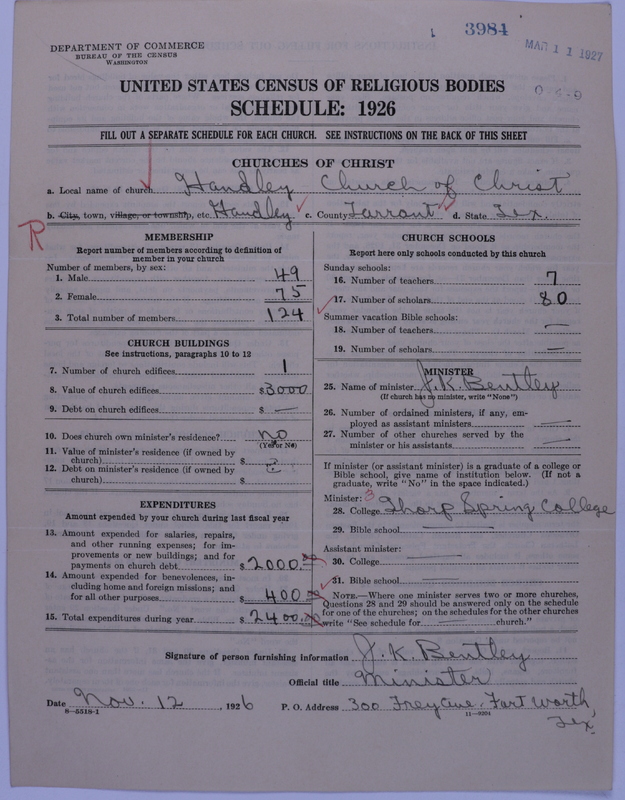 3984
MAR 11 1927
DEPARTMENT OF COMMERCE
BUREAU OF THE CENSUS
WASHINGTON
UNITED STATES CENSUS OF RELIGIOUS BODIES
SCHEDULE: 1926
FILL OUT A SEPARATE SCHEDULE FOR EACH CHURCH. SEE INSTRUCTIONS ON THE BACK OF THIS SHEET
CHURCHES OF CHRIST
a. Local name of church Handley Church of Christ
b. City, town, village, or township, etc. Handley c. County Tarrant d. State Tex.
R
MEMBERSHIP
Report number of members according to definition of
member in your church
Number of members, by sex:
1. Male 49
2. Female 75
3. Total number of members 124
CHURCH BUILDINGS
See instructions, paragraphs 10 to 12
7. Number of church edifices 1
8. Value of church edifices $3000
9. Debt on church edifices $ —
10. Does church own minister's residence? no
(Yes or No)
11. Value of minister's residence (if owned by
church) $
12. Debt on minister's residence (if owned by
church) $
EXPENDITURES
Amount expended by your church during last fiscal year
13. Amount expended for salaries, repairs,
and other running expenses; for im-
provements or new buildings; and for
payments on church debt $2000.00
14. Amount expended for benevolences, in-
cluding home and foreign missions; and
for all other purposes $400.00
15. Total expenditures during year $2400.00
CHURCH SCHOOLS
Report here only schools conducted by this church
Sunday schools:
16. Number of teachers 7
17. Number of scholars 80
Summer vacation Bible schools:
18. Number of teachers —
19. Number of scholars —
MINISTER
25. Name of minister J. K. Bentley
(If church has no minister, write "None")
26. Number of ordained ministers, if any, em-
ployed as assistant ministers —
27. Number of other churches served by the
minister or his assistants —
If minister (or assistant minister) is a graduate of a college or
Bible school, give name of institution below. (If not a
graduate, write "No" in the space indicated.)
Minister: 3
28. College Thorp Spring College
29. Bible school —
Assistant minister:
30. College —
31. Bible school —
NOTE.—Where one minister serves two or more churches,
Questions 28 and 29 should be answered only on the schedule
for one of the churches; on the schedules for the other churches
write "See schedule for — church."
Signature of person furnishing information J. K. Bentley
Official title Minister
Date Nov. 12, 1926 P. O. Address 300 Frey ave. Fort Worth,
Tex.
8—5518-1 11—9394